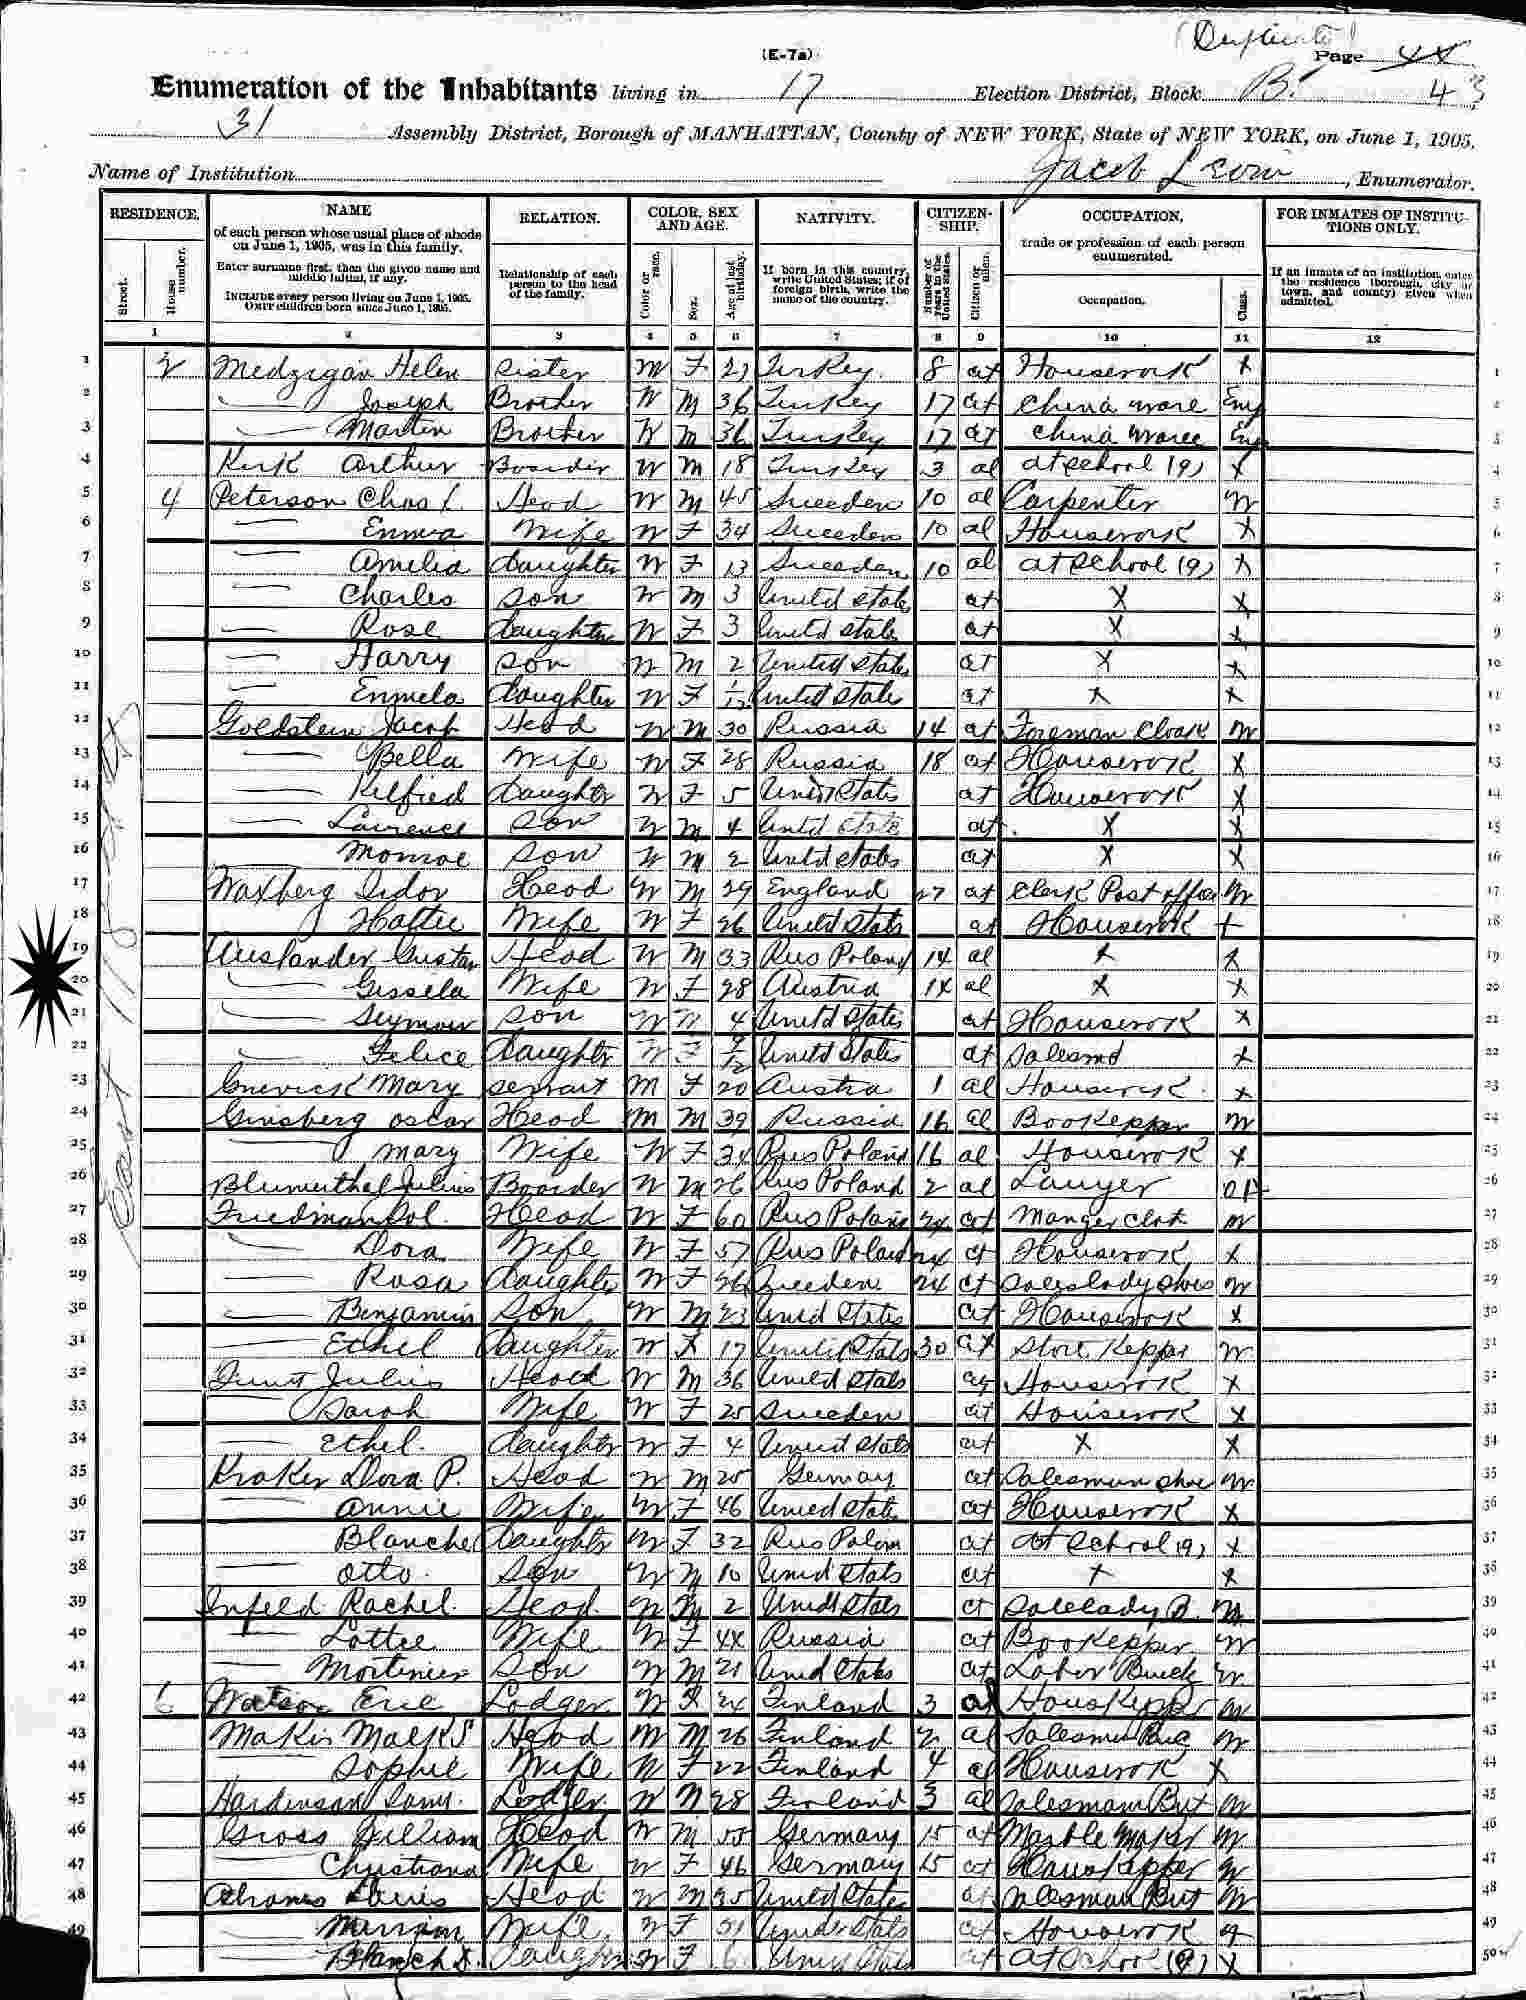 (Duplicate)
(E-7a)
Page 44
43
Enumeration of the Inhabitants living in 17 Election District, Block B.
31 Assembly District, Borough of MANHATTAN, County of NEW YORK, State of NEW YORK, on June 1, 1905.
Name of Institution Jacob Levin, Enumerator.
RESIDENCE. NAME RELATION. COLOR, SEX AND AGE. NATIVITY. CITIZENSHIP. OCCUPATION, FOR INMATES OF INSTITUTIONS ONLY.
of each person whose usual place of abode on June 1, 1905, was in this family.
Enter surname first, then the given name and middle initial, if any.
INCLUDE every person living on June 1, 1905. OMIT children born since June 1, 1905.
Relationship of each person to the head of the family.
If born in this country, write United States; if of foreign birth, write the name of the country.
trade or profession of each person enumerated.
If an inmate of an institution, enter the residence (borough, city or town, and county) given when admitted.
Street. House number. Color or race. Sex. Age at last birthday. Number of years in the United States Citizen or alien. Occupation. Class.
1 2 3 4 5 6 7 8 9 10 11 12
East 118 St
1 2 Medzigan Helen Sister W F 27 Turkey 8 ct Housework X
2 — Joseph Brother W M 36 Turkey 17 ct China ware Emp
3 — Martin Brother W M 36 Turkey 17 ct China waree Emp
4 Kirk Arthur Boarder W M 18 Turkey 3 al at School (9) X
5 4 Peterson Chas Head W M 45 Sweeden 10 al Carpenter W
6 — Emma Wife W F 34 Sweeden 10 al Housework X
7 — Amelia Daughter W F 13 Sweeden 10 al at School (9) X
8 — Charles Son W M 3 United States ct X X
9 — Rose Daughter W F 3 United States ct X X
10 — Harry Son W M 2 United States ct X X
11 — Emmela Daughter W F 1/12 United States ct X X
12 Goldstein Jacob Head W M 30 Russia 14 ct Foreman Cloak W
13 — Bella Wife W F 28 Russia 18 ct Housework X
14 — Daughter W F 5 United States ct Housework X
15 — Laurence Son W M 4 United States ct X X
16 Monroe Son W M 2 United States ct X X
17 Waxberg Isidor Head W M 29 England 27 ct Clerk Post office W
18 Hattie Wife W F 26 United States ct Housework X
19 Auslander Gustav Head W M 33 Rus Poland 14 al X X
20 — Gissela Wife W F 28 Austria 14 al X X
21 — Seymour Son W M 4 United States ct Housework X
22 — Felice Daughter W F 9/12 United States ct X
23 Mary Servant W F 20 Austria 1 al Housework X
24 Ginsberg Oscar Head W M 39 Russia 16 al Bookepper W
25 — Mary Wife W F 34 Rus Poland 16 al Housework X
26 Blumenthal Julius Boarder W M 26 Rus Poland 2 al Lawyer OA
27 Friedman Sol. Head W F 60 Rus Poland 24 ct Manger Clok W
28 — Dora Wife W F 57 Rus Poland 24 ct Housework X
29 — Rosa Daughter W F 26 Sweeden 24 ct Saleslady Shoes W
30 — Benjamin Son W M 23 United States ct Housework X
31 — Ethel Daughter W F 17 United States 30 ct Store Kepper W
32 Julius Head W M 36 United States ct Housework X
33 — Sarah Wife W F 25 Sweeden ct Housework X
34 — Ethel. Daughter W F 4 United States ct X X
35 Kraker Dora P. Head W M 25 Germany ct Salesman Shoe W
36 — Annie Wife W F 46 United States ct Housework X
37 Blanche Daughter W F 32 Rus Polan ct at School (9) X
38 — Otto. Son W M 10 United States ct X X
39 Infeld Rachel Head W M 2 United States ct Salelady B. W
40 — Lottie Wife W F 44 Russia ct Bookepper W
41 — Mortimer Son W M 21 United States ct Labor Buick W
42 6 Watson Eric Lodger W F 24 Finland 3 al Houskepper W
43 Makis Head W M 26 Finland 2 al Salesman W
44 — Sophie Wife W F 22 Finland 4 al Housework X
45 Lodger W M 28 Finland 3 al Salesman But W
46 Gross William Head W M 55 Germany 15 ct Marble Maker W
47 — Christiana Wife W F 46 Germany 15 ct Houskepper W
48 Abrams Louis Head W M 35 United States ct Salesman But W
49 — Mirriam Wife W F 31 United States ct Housework X
50 — Blanch S. Daughter W F 6 United States ct at School (9) X